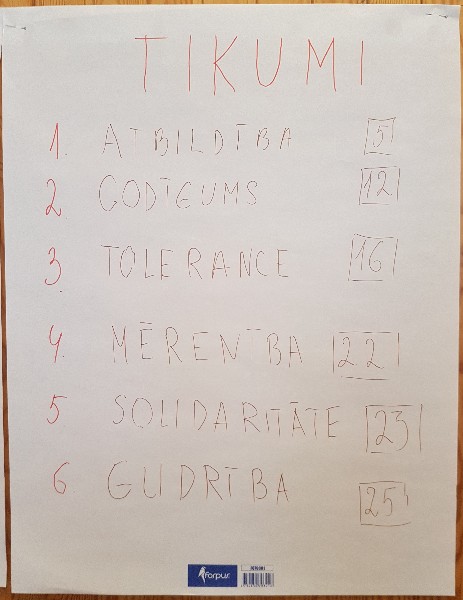 TIKUMI
1. ATBILDĪBA 5
2 GODĪGUMS 12
3. TOLERANCE 16
4. MĒRENĪBA 22
5 SOLIDARITĀTE 23
6 GUDRĪBA 25
forpus